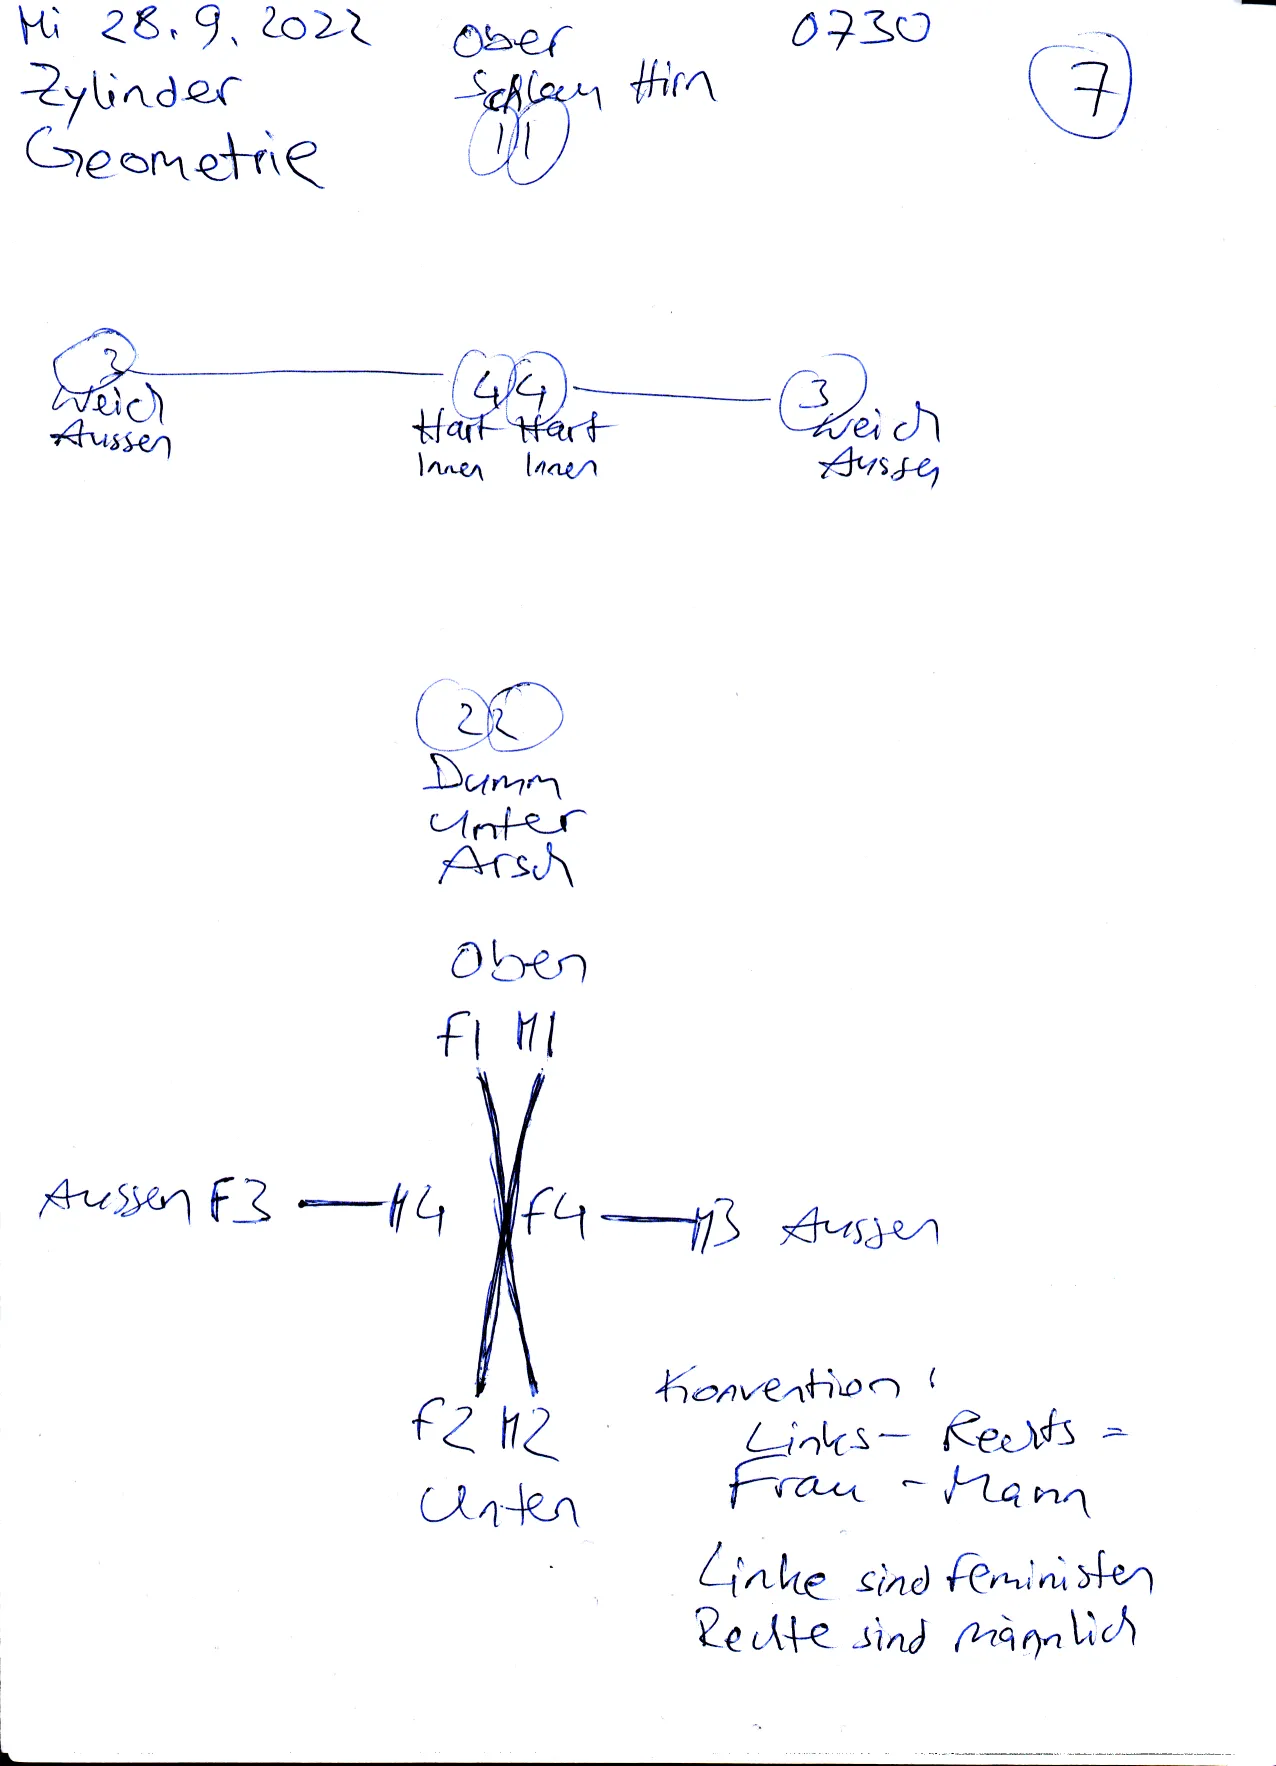 Mi 28.9.2022
Zylinder
Geometrie
Ober
Schlau Hirn
1 1
0730
7
3
Weich
Aussen
4 4
Hart Hart
Innen Innen
3
Weich
Aussen
2 2
Dumm
Unter
Arsch
Oben
F1 M1
Aussen F3 — M4 F4 — M3 Aussen
F2 M2
Unten
Konvention:
Links - Rechts =
Frau - Mann
Linke sind Feministen
Rechte sind männlich